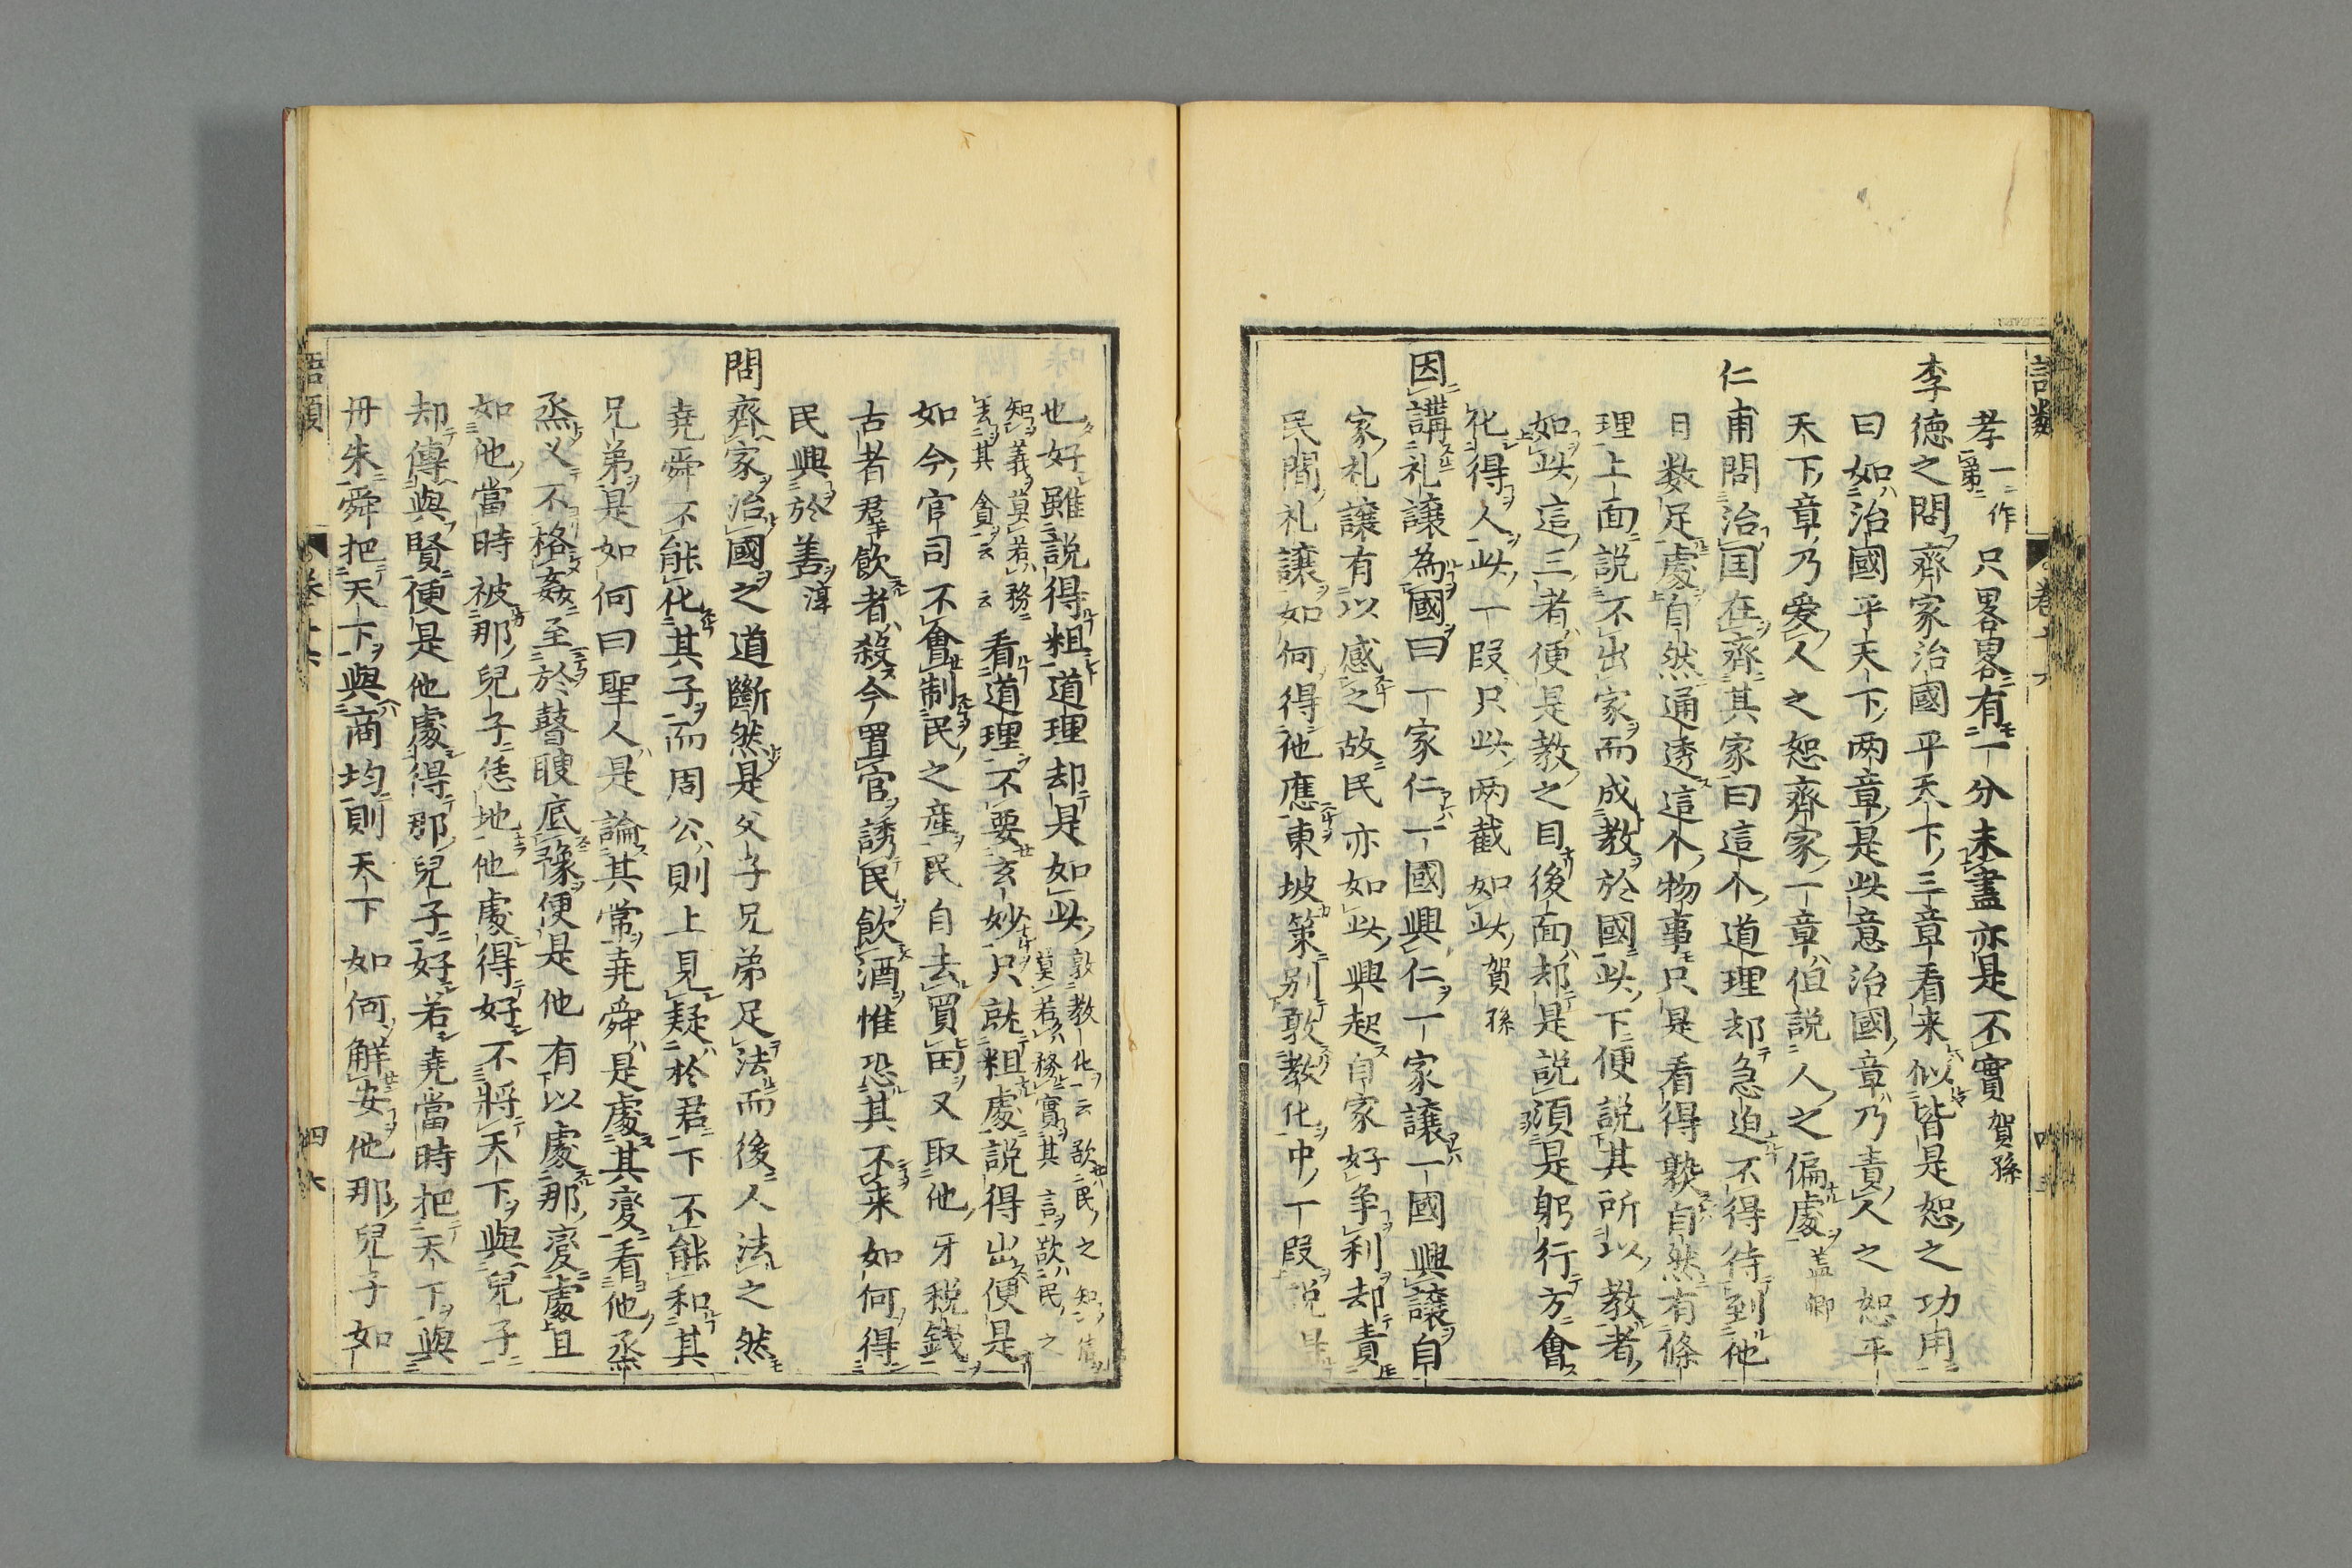 孝一作第只畧畧有一分未盡亦是不實賀孫
李德之問齊家治國平天下三章看来似皆是恕之功用
曰如治國平天下两章是此意治國章乃責人之恕平
天下章乃爱人之恕齊家一章但説人之偏處盖卿
仁甫問治囯在齊其家曰這个道理却急迫不得待到他
日数足處自然通透這个物事只是看得熟自然有條
理上面説不出家而成教於國此下便説其所以教者
如此這三者便是教之目後面却是説須是躬行方會
化得人此一段只此两截如此賀孫
因講礼讓為國曰一家仁一國興仁一家讓一國興讓自
家礼讓有以感之故民亦如此興起自家好争利却責
民間礼讓如何得他應東坡策别敦教化中一段説得
也好雖説得粗道理却是如此敦教化一云欲民之知信
莫若務實其言欲民之
知義莫若務
去其貪云云看道理不要玄妙只就粗處説得出便是
如今官司不會制民之産民自去買田又取他牙税錢
古者羣飲者殺今置官誘民飲酒惟恐其不来如何得
民興於善淳
問齊家治國之道斷然是父子兄弟足法而後人法之然
堯舜不能化其子而周公則上見疑於君下不能和其
兄弟是如何曰聖人是論其常堯舜是處其變看他烝
烝乂不格姦至於瞽瞍底豫便是他有以處那變處且
如他當時被那兒子恁地他處得好不將天下與兒子
却傳與賢便是他處得那兒子好若堯當時把天下與
丹朱舜把天下與商均則天下如何解安他那兒子如
語類
卷十六
四六